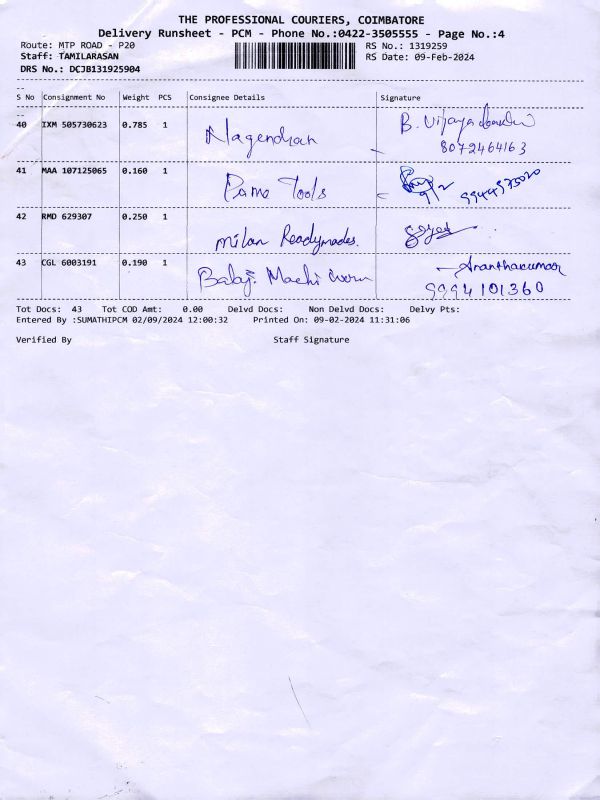 THE PROFESSIONAL COURIERS, COIMBATORE
Delivery Runsheet - PCM - Phone No.:0422-3505555 - Page No.:4
Route: MTP ROAD - P20 RS No.: 1319259
Staff: TAMILARASAN RS Date: 09-Feb-2024
DRS No.: DCJB131925904
S No Consignment No Weight PCS Consignee Details Signature
40 IXM 505730623 0.785 1 Nagendhan B. Vijaya
8072464163
41 MAA 107125065 0.160 1 Pame Tools
42 RMD 629307 0.250 1 Milan Readymades.
43 CGL 6003191 0.190 1 Balaji Ananthakumar
9994101360
Tot Docs: 43 Tot COD Amt: 0.00 Delvd Docs: Non Delvd Docs: Delvy Pts:
Entered By :SUMATHIPCM 02/09/2024 12:00:32 Printed On: 09-02-2024 11:31:06
Verified By Staff Signature